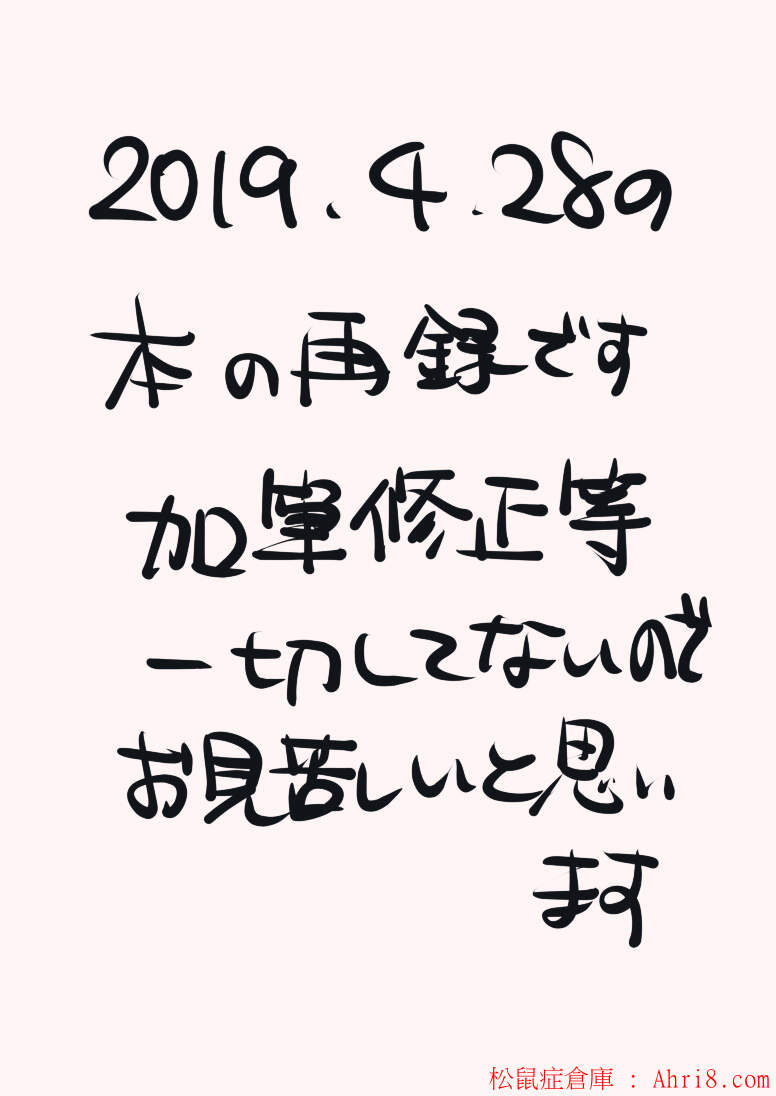 2019.4.28の
本の再録です
加筆修正等
一切してないので
お見苦しいと思い
ます
松鼠症倉庫 : Ahri8.com